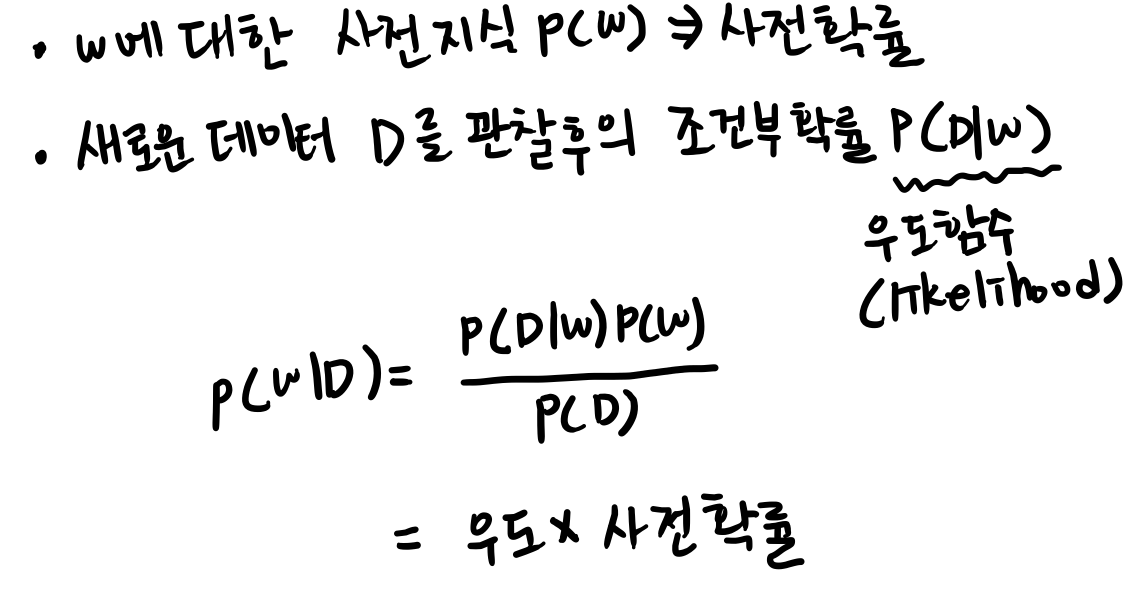 • w에 대한 사전지식 p(w) ⇒ 사전확률
• 새로운 데이터 D를 관찰후의 조건부확률 P(D|w)
우도함수
(likelihood)
p(w|D) = P(D|w)P(w) / P(D)
= 우도 × 사전확률